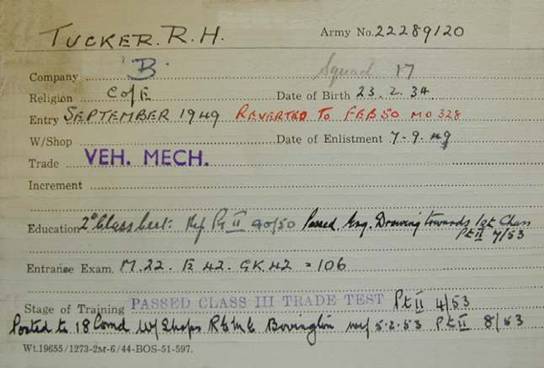 TUCKER. R. H. Army No. 22289120
Company "B" Squad 17
Religion C of E Date of Birth 23. 2. 34
Entry SEPTEMBER 1949 REVERTED TO FEB 50 MO 328
W/Shop Date of Enlistment 7-9-49
Trade VEH. MECH.
Increment
Education 2nd Class Cert: Ref Pt II 90/50 Passed Eng. Drawing towards 1st Class
Pt II 7/53
Entranse Exam. M.22. E 42. G.K.42 = 106
Stage of Training PASSED CLASS III TRADE TEST Pt II 4/53
Posted to 18 Comd W/Shops REME Bovington wef 5.2.53 Pt II 8/53
Wt.19655/1273-2M-6/44-BOS-51-597.